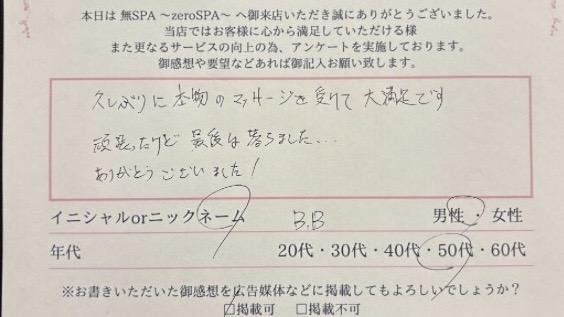 本日は 無SPA ～zeroSPA～ へ御来店いただき誠にありがとうございました。
当店ではお客様に心から満足していただける様
また更なるサービスの向上の為、アンケートを実施しております。
御感想や要望などあれば御記入お願い致します。
久しぶりに本物のマッサージを受けて大満足です
頑張ったけど最後は落ちました...
ありがとうございました!
イニシャルorニックネーム B.B 男性・女性
年代 20代・30代・40代・50代・60代
※お書きいただいた御感想を広告媒体などに掲載してもよろしいでしょうか?
□掲載可 □掲載不可